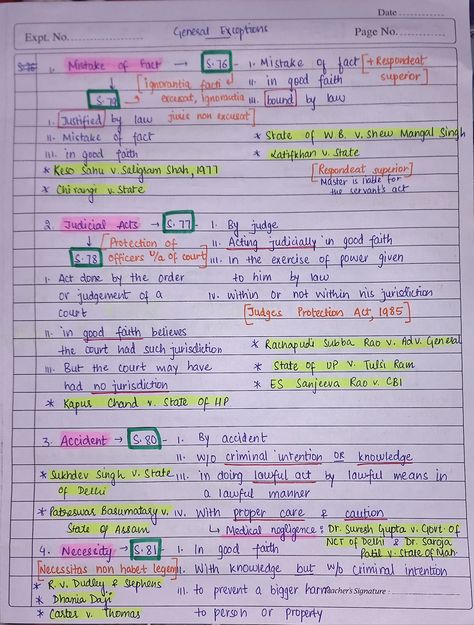 Date
Expt. No. General Exceptions Page No.
1. Mistake of Fact → S.76 - i. Mistake of fact [+ Respondeat superior]
[ignorantia facti excusat, ignorantia juris non excusat] ii. in good faith
S.79 iii. bound by law
i. Justified by law
ii. Mistake of fact * State of W.B. v. Shew Mangal Singh
iii. in good faith * Latifkhan v. State
* Keso Sahu v. Saligram Shah, 1977 [Respondeat superior]
* Chirangi v. State Master is liable for the servant's act
2. Judicial Acts → S.77 - i. By judge
↓ [Protection of officers u/a of court] ii. Acting judicially in good faith
S.78 iii. In the exercise of power given
i. Act done by the order to him by law
or judgement of a iv. within or not within his jurisdiction
court [Judges Protection Act, 1985]
ii. in good faith believes
the court had such jurisdiction * Rachapudi Subba Rao v. Adv. General
iii. But the court may have * State of UP v. Tulsi Ram
had no jurisdiction * ES Sanjeeva Rao v. CBI
* Kapur Chand v. State of HP
3. Accident → S.80 - i. By accident
ii. w/o criminal intention OR knowledge
* Sukhdev Singh v. State of Delhi iii. in doing lawful act by lawful means in
a lawful manner
* Patreswar Basumatary v. State of Assam iv. With proper care & caution
↳ Medical negligence : Dr. Suresh Gupta v. Govt. of NCT of Delhi & Dr. Saroja Patil v. State of Mah.
4. Necessity → S.81 - i. In good faith
[Necessitas non habet legem] ii. With knowledge but w/o criminal intention
* R v. Dudley & Stephens iii. to prevent a bigger harm Teacher's Signature :
* Dhania Daji
* Carter v. Thomas to person or property